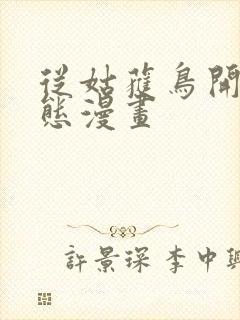 從姑獲鳥開
態漫畫
許景琛 李中興